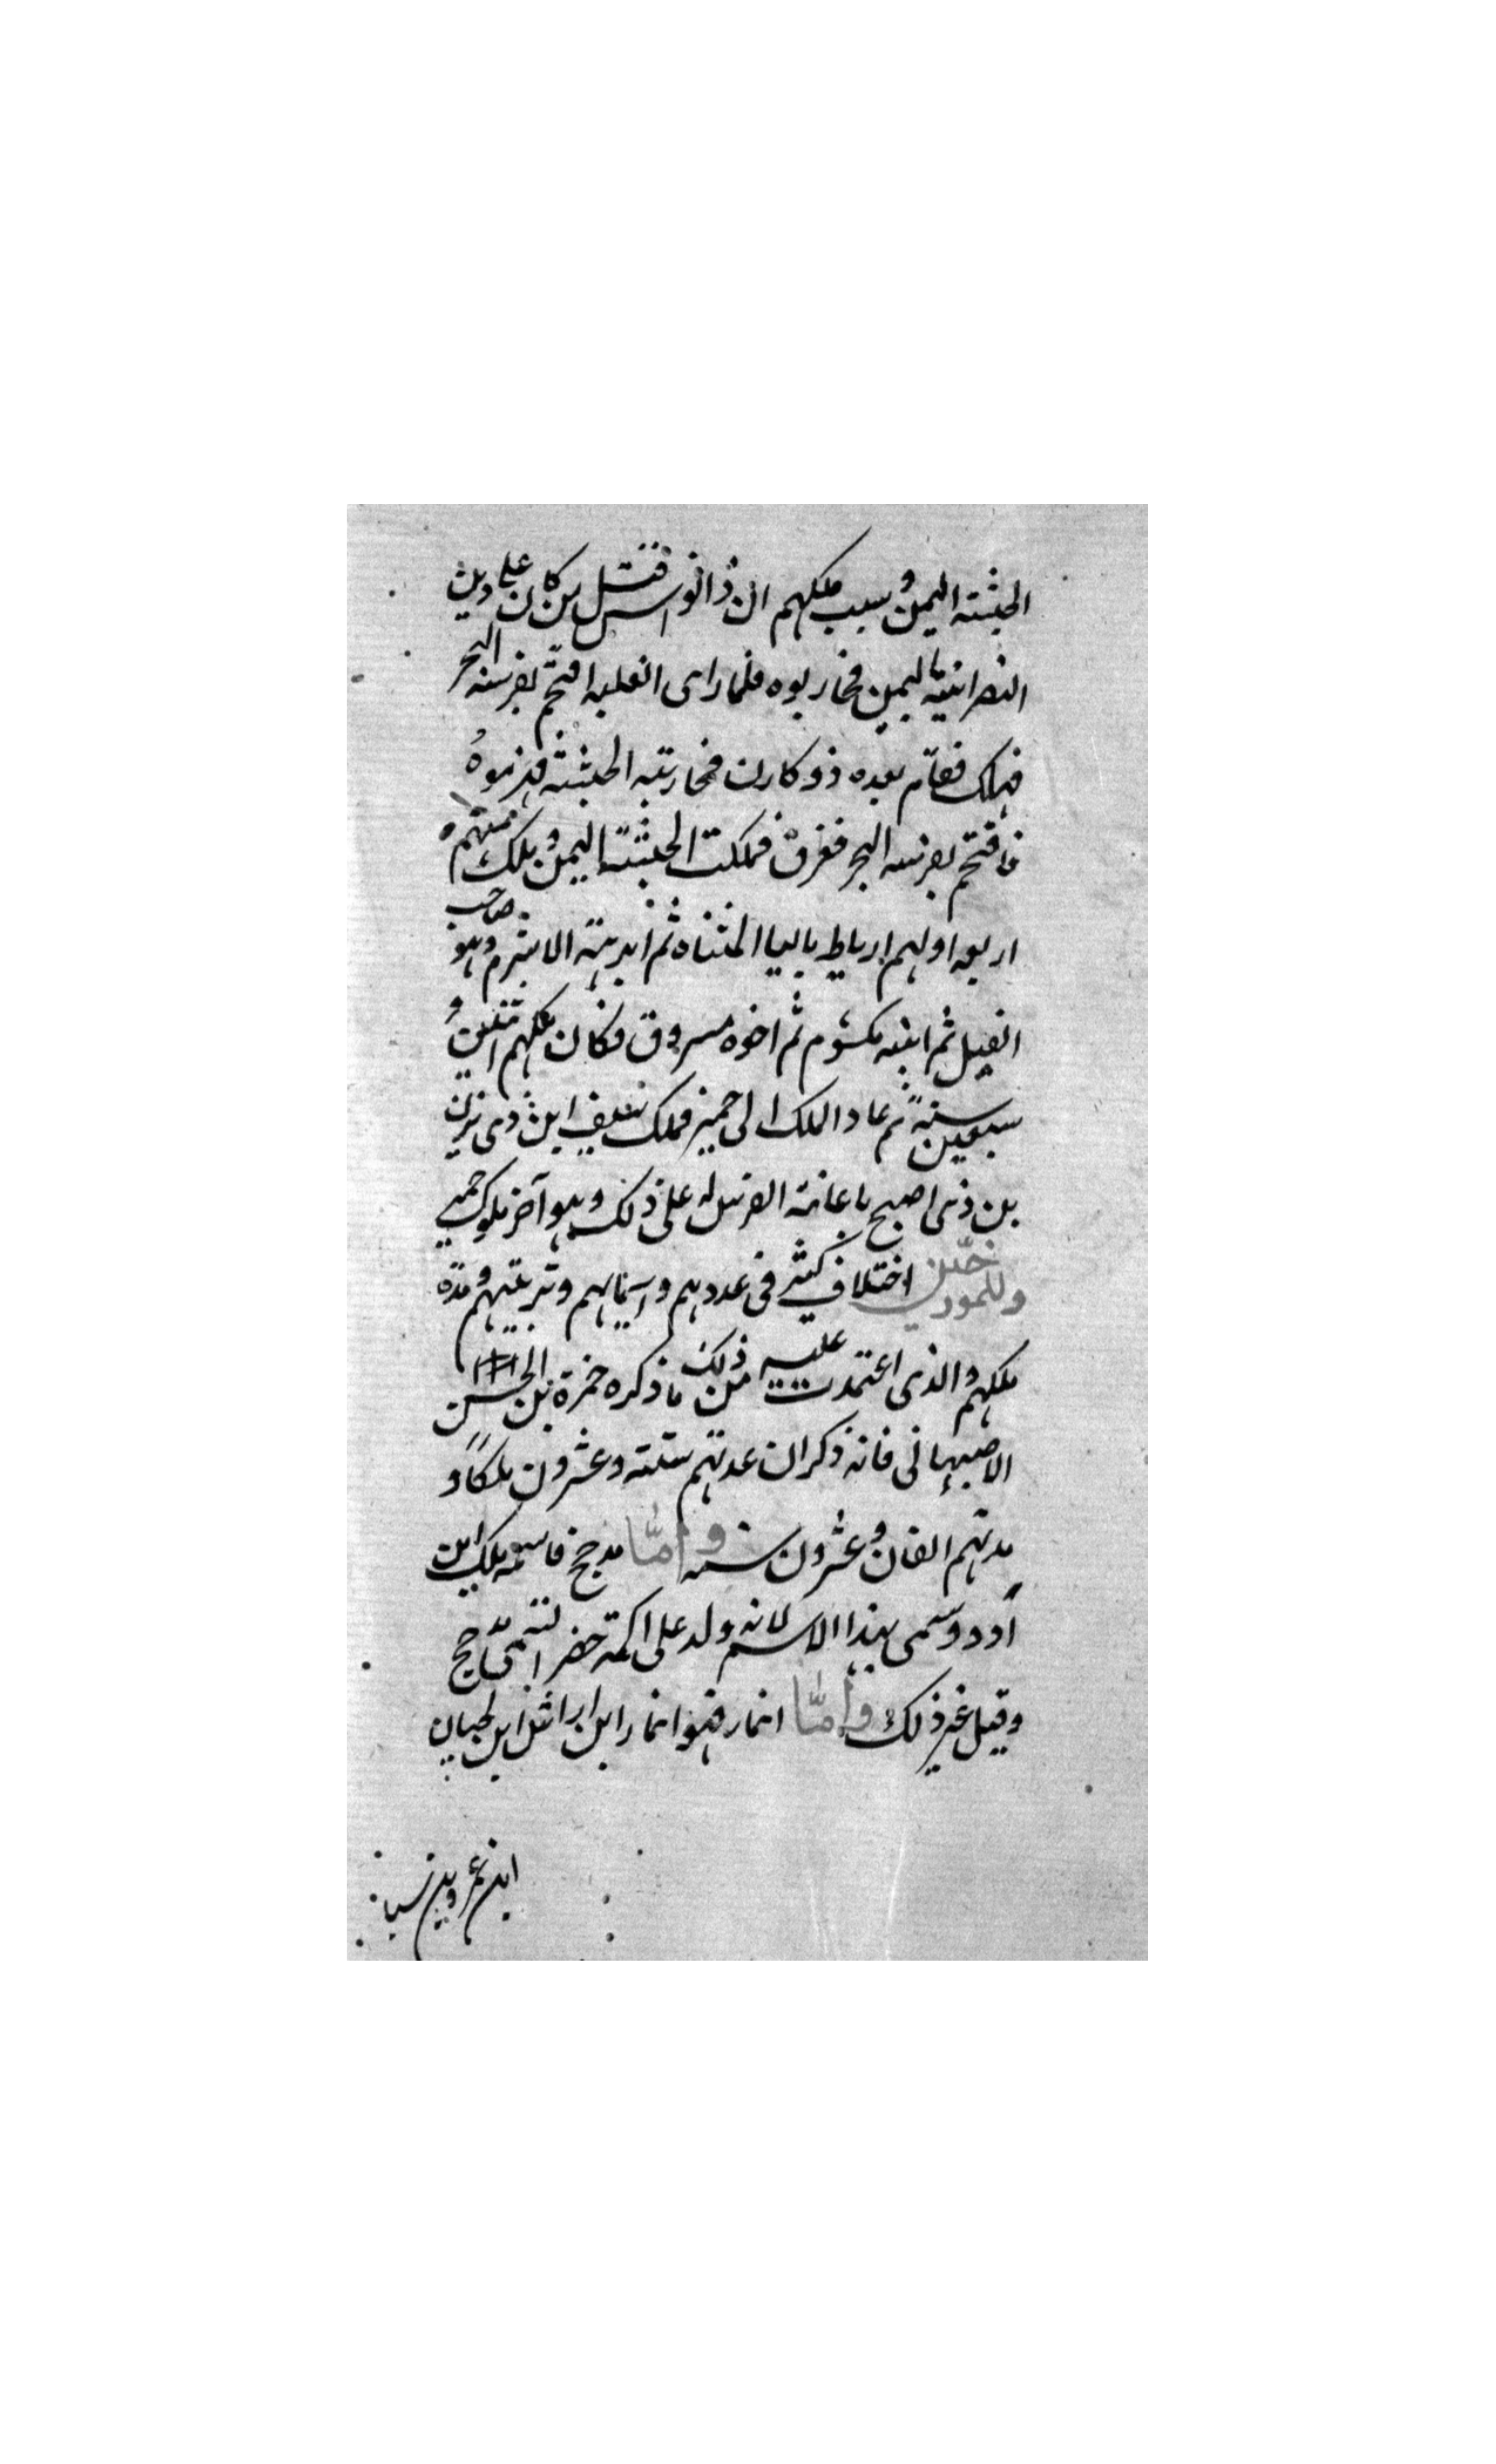 الحبشة اليمن وسبب ملكهم ان ذا نواس قتل من كان على دين
النصرانية باليمن فحاربوه فلما راى الغلبة اقتحم بفرسه البحر
فهلك فقام بعده ذو كارن فحاربته الحبشة فهزموه
فاقتحم بفرسه البحر فغرق فملكت الحبشة اليمن وملك منهم
اربعة اولهم ارياط باليا المثناه ثم ابرهة الاشرم وهو صاحب
الفيل ثم ابنه مكسوم ثم اخوه مسروق فكان ملكهم اثنين و
سبعين سنة ثم عاد الملك الى حمير فملك سيف ابن ذى يزن
بن ذى اصبح باعانة الفرس له على ذلك وهو آخر ملوك حمير
وللمورخين اختلاف كثير فى عددهم واسمائهم وترتيبهم ومدة
ملكهم والذى اعتمدت عليه من ذلك ما ذكره حمزة بن الحسن
الاصبهانى فانه ذكر ان عدتهم ستة وعشرون ملكا و
مدتهم الفان وعشرون سنه واما مدحج فاسمه ملك ابن
أدد وسمى بهذا الاسم لانه ولد على اكمة حضر اتسمى مدحج
وقيل غير ذلك واما انمار فهو انمار ابن اراش ابن لحيان
ابن عمرو بن سبا